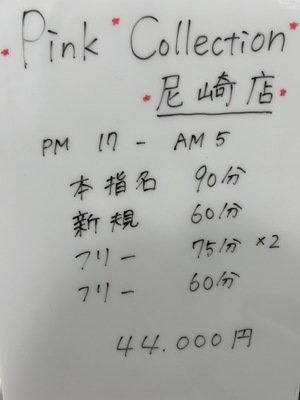 Pink Collection
尼崎店
PM 17 - AM 5
本指名 90分
新規 60分
フリー 75分 ×2
フリー 60分
44.000円